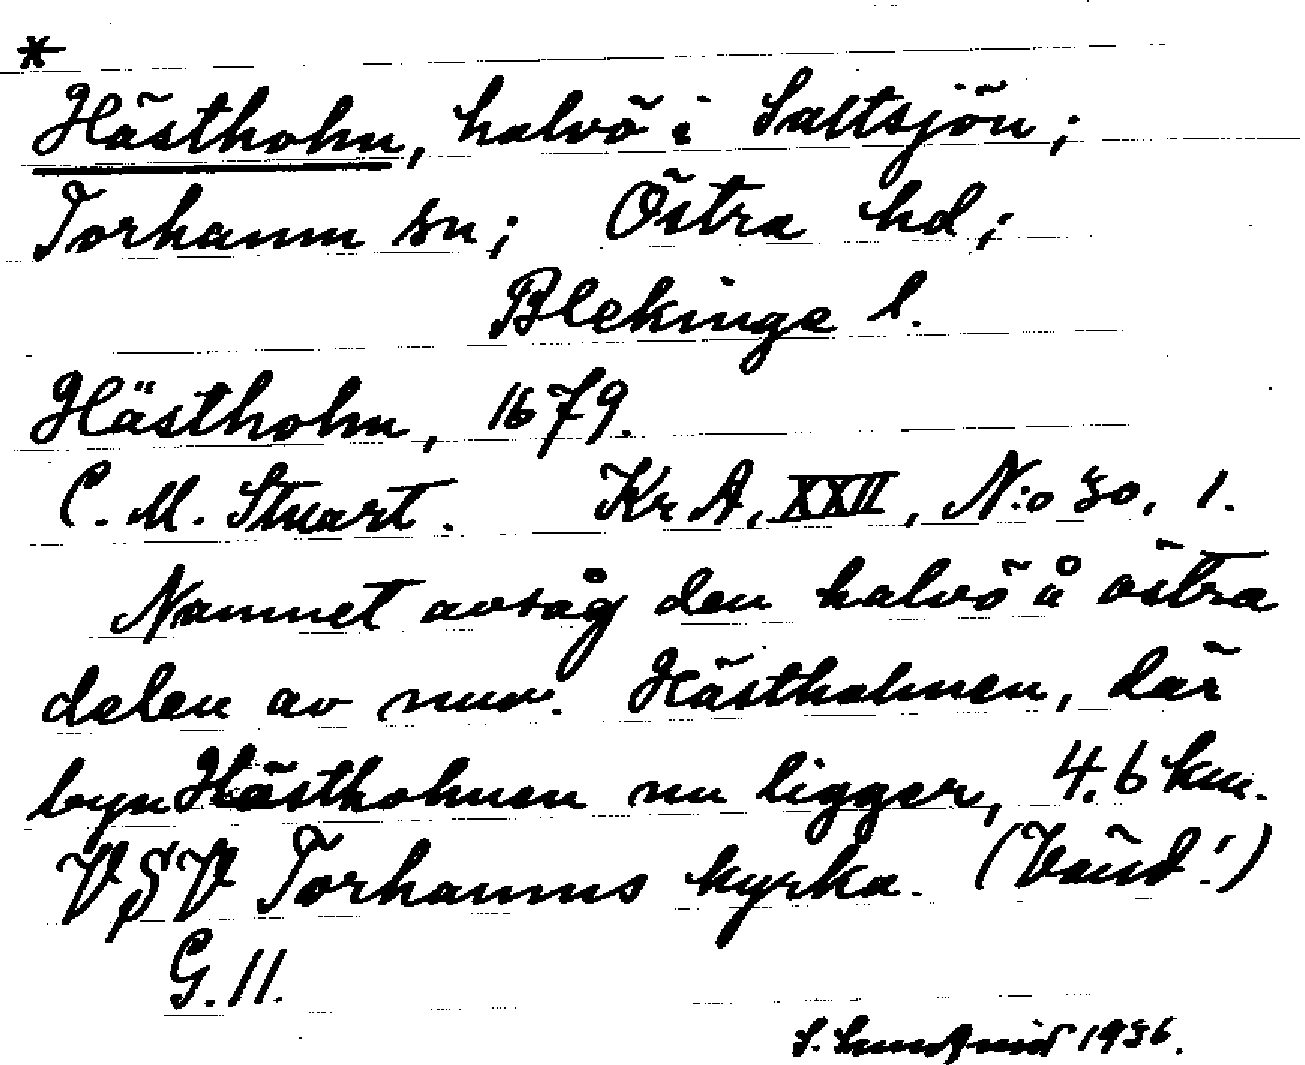 *
Hästholm, halvö i Saltsjön;
Torhamn sn; Östra hd;
Blekinge l.
Hästholm, 1679.
C. M. Stuart. Kr A, XXII, N:o 30, 1.
Namnet avsåg den halvö å östra
delen av nuv. Hästholmen, där
byn Hästholmen nu ligger, 4.6 km.
VSV Torhamns kyrka. (Vänd!)
G. 11.
S. Lundqvist 1936.